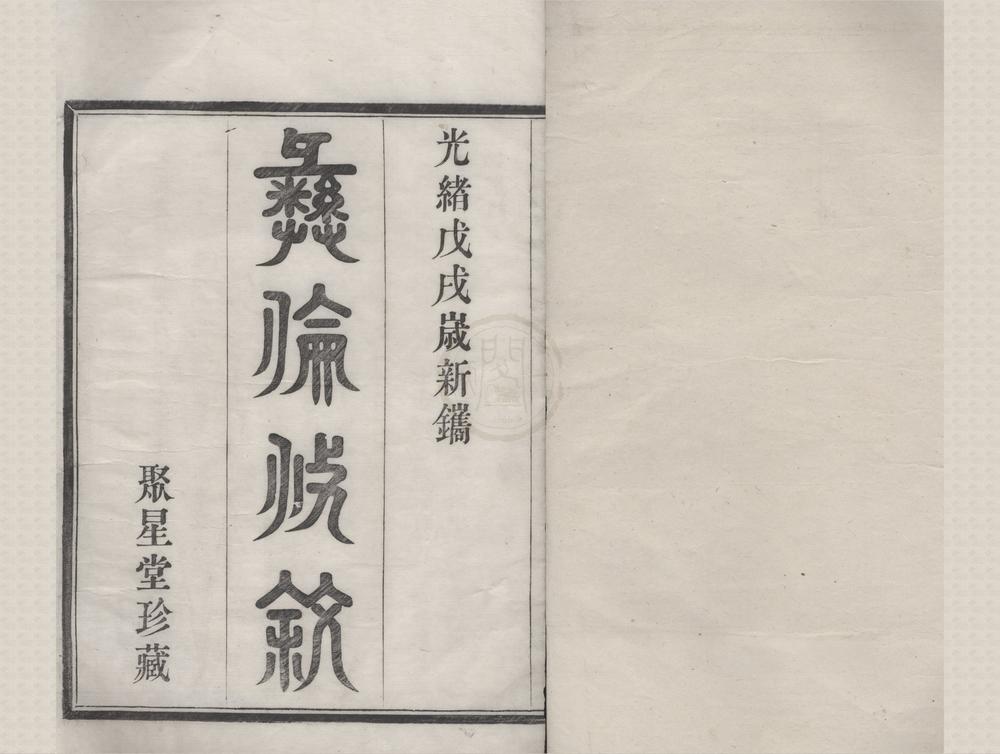 光緒戊戌嵗新鑴
彝倫攸敘
聚星堂珍藏